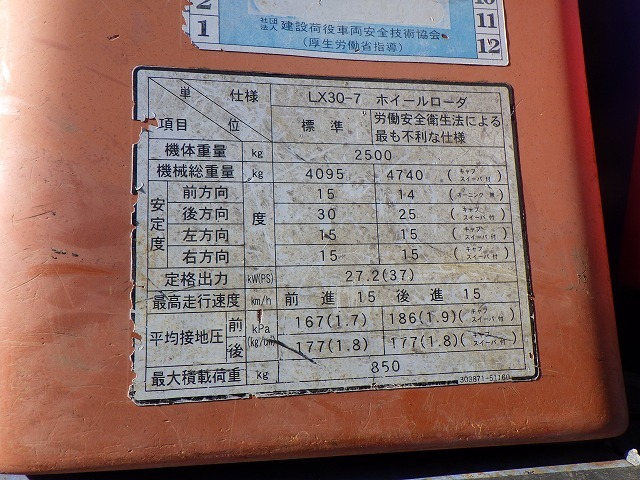 2
1
10
11
12
社団法人 建設荷役車両安全技術協会
(厚生労働省指導)
単 位 仕様 項目 LX30-7 ホイールローダ
標準 労働安全衛生法による最も不利な仕様
機体重量 kg 2500
機械総重量 kg 4095 4740 (キャブ スイーパ 付)
安定度 前方向 度 15 14
後方向 30 25 (キャブ スイーパ付)
左方向 15 15 (キャブ スイーパ付)
右方向 15 15 (キャブ スイーパ付)
定格出力 kW(PS) 27.2(37)
最高走行速度 km/h 前進 15 後進 15
平均接地圧 前 kPa (kg/cm²) 167(1.7) 186(1.9) (キャブ スイーパ付)
後 177(1.8) 177(1.8) (キャブ スイーパ付)
最大積載荷重 kg 850
303871-51160